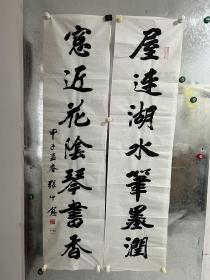 屋连湖水笔墨润
窗近花阴琴书香
甲辰孟春